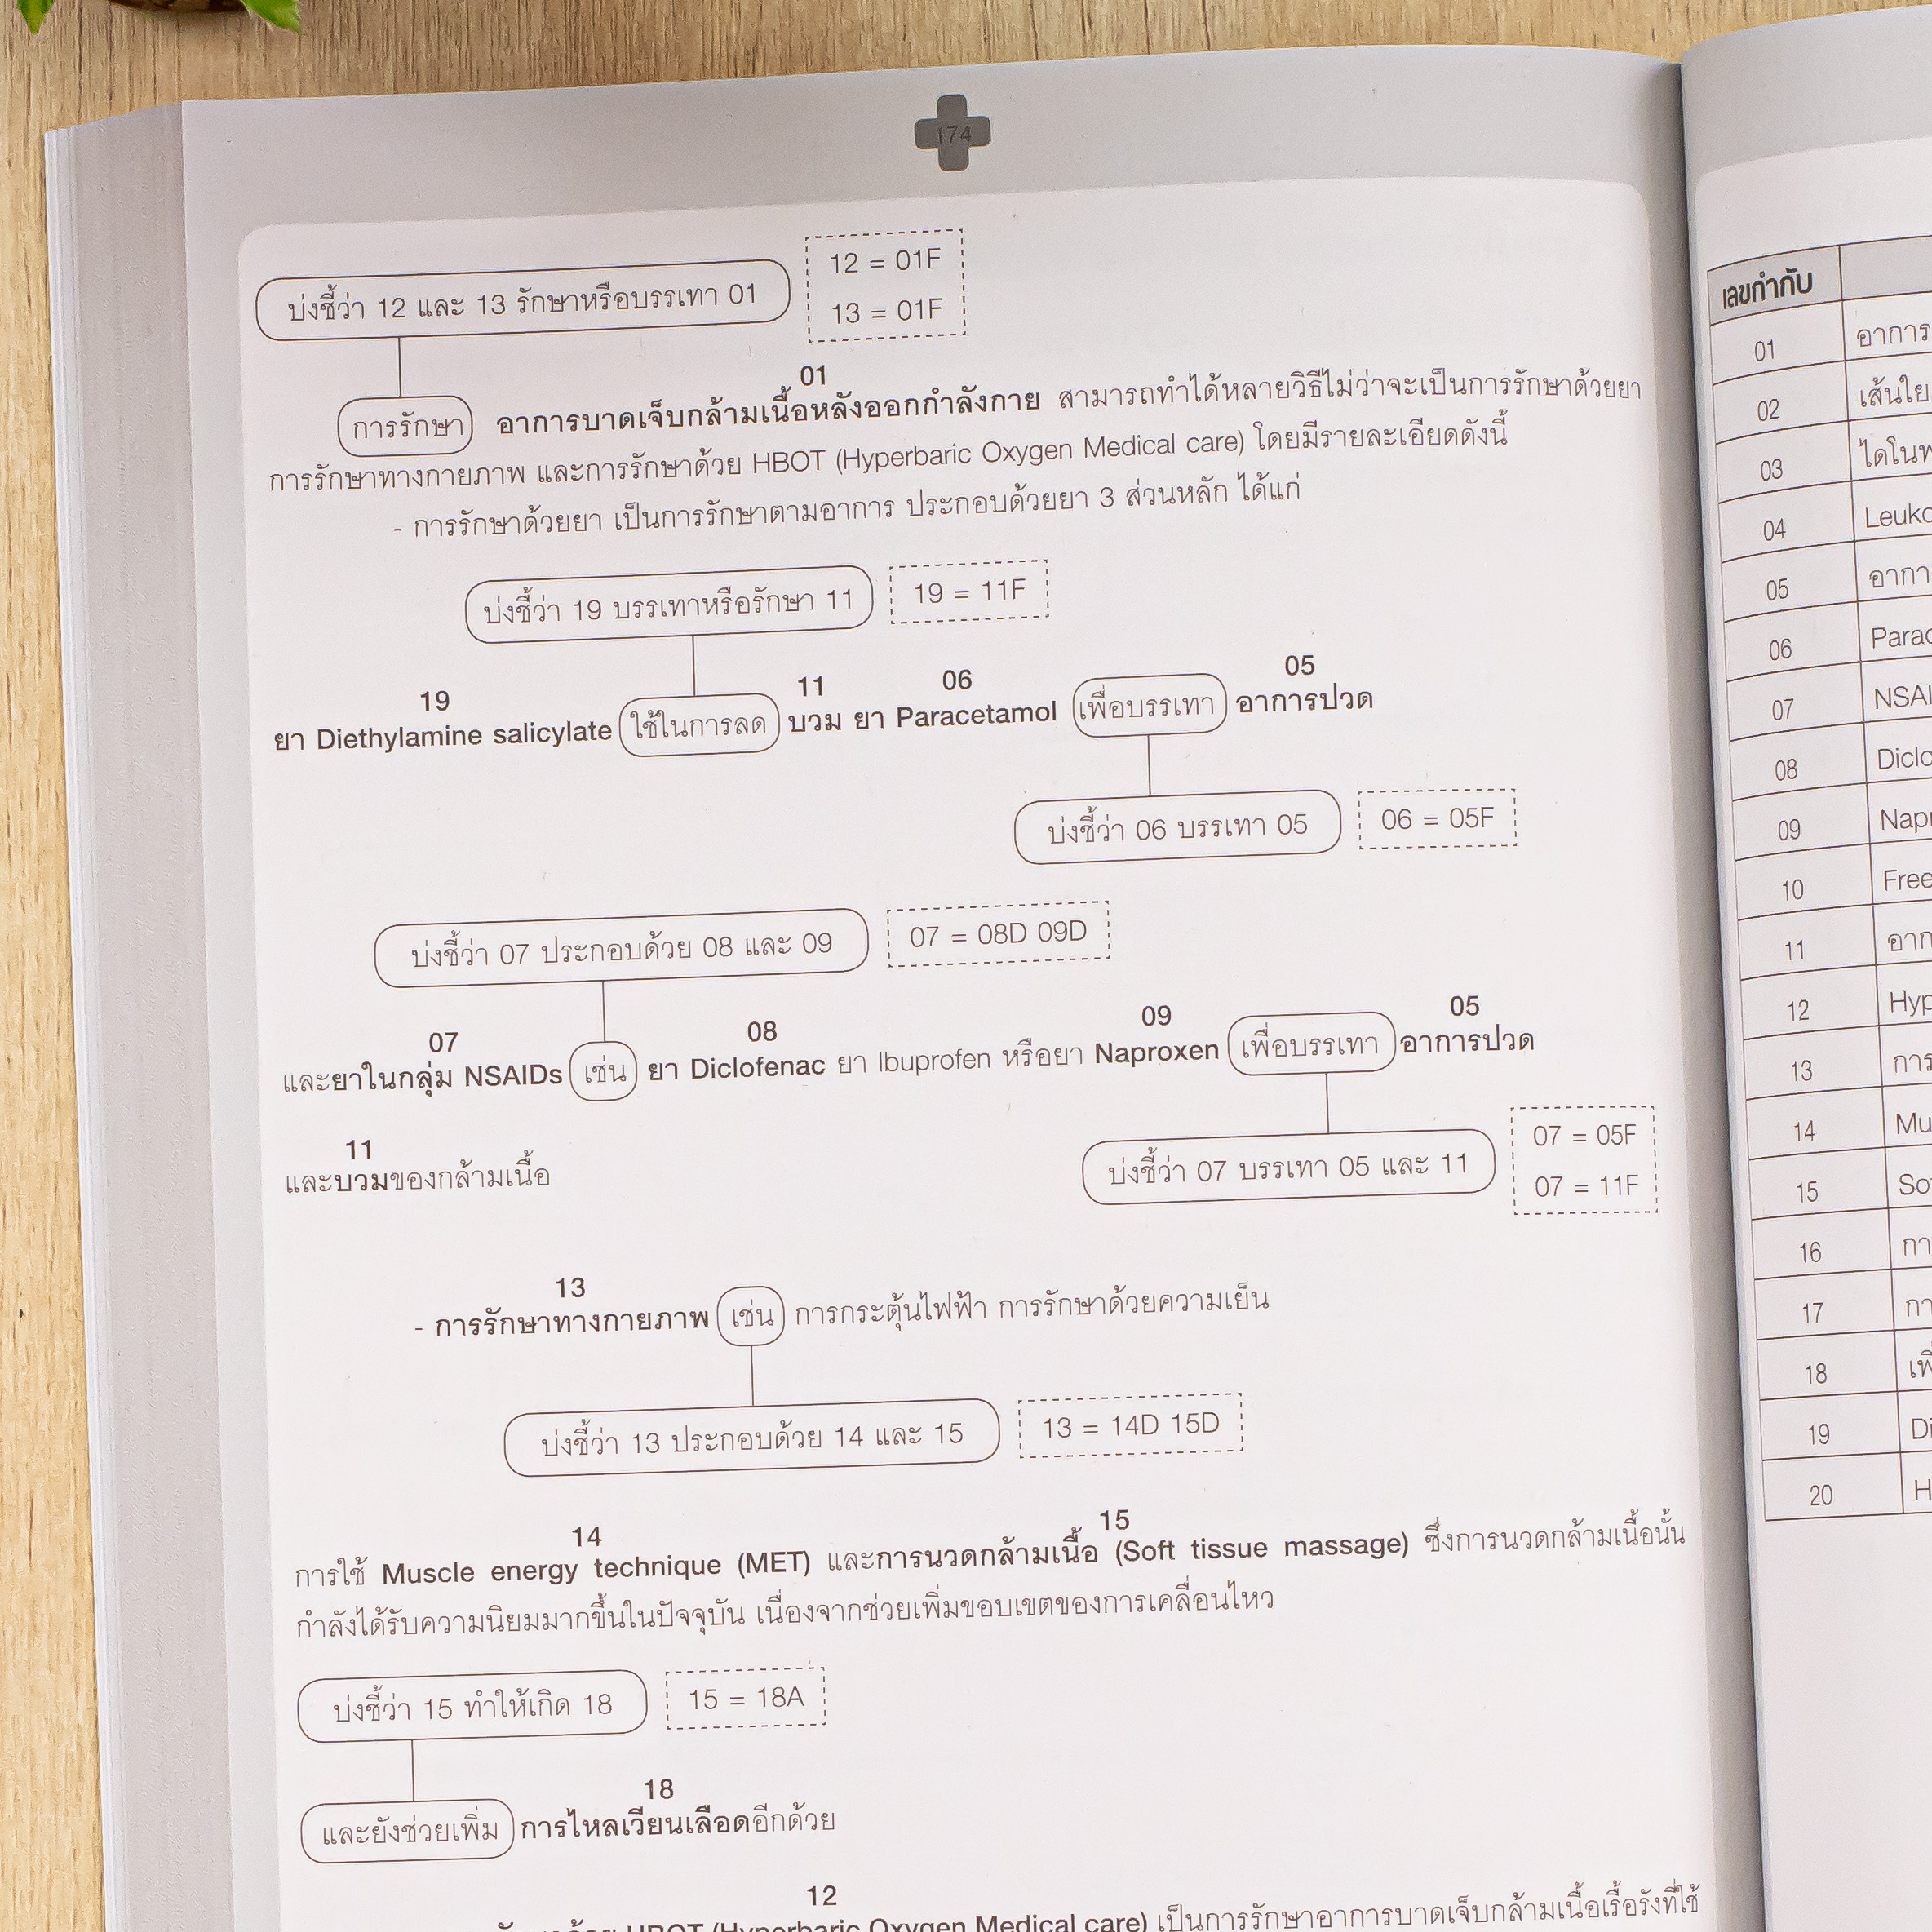 174
บ่งชี้ว่า 12 และ 13 รักษาหรือบรรเทา 01
12 = 01F
13 = 01F
01
การรักษา อาการบาดเจ็บกล้ามเนื้อหลังออกกำลังกาย สามารถทำได้หลายวิธีไม่ว่าจะเป็นการรักษาด้วยยา
การรักษาทางกายภาพ และการรักษาด้วย HBOT (Hyperbaric Oxygen Medical care) โดยมีรายละเอียดดังนี้
- การรักษาด้วยยา เป็นการรักษาตามอาการ ประกอบด้วยยา 3 ส่วนหลัก ได้แก่
บ่งชี้ว่า 19 บรรเทาหรือรักษา 11
19 = 11F
19 11 06 05
ยา Diethylamine salicylate ใช้ในการลด บวม ยา Paracetamol เพื่อบรรเทา อาการปวด
บ่งชี้ว่า 06 บรรเทา 05
06 = 05F
บ่งชี้ว่า 07 ประกอบด้วย 08 และ 09
07 = 08D 09D
07 08 09 05
และยาในกลุ่ม NSAIDs เช่น ยา Diclofenac ยา Ibuprofen หรือยา Naproxen เพื่อบรรเทา อาการปวด
11
และบวมของกล้ามเนื้อ
บ่งชี้ว่า 07 บรรเทา 05 และ 11
07 = 05F
07 = 11F
13
- การรักษาทางกายภาพ เช่น การกระตุ้นไฟฟ้า การรักษาด้วยความเย็น
บ่งชี้ว่า 13 ประกอบด้วย 14 และ 15
13 = 14D 15D
14 15
การใช้ Muscle energy technique (MET) และการนวดกล้ามเนื้อ (Soft tissue massage) ซึ่งการนวดกล้ามเนื้อนั้น
กำลังได้รับความนิยมมากขึ้นในปัจจุบัน เนื่องจากช่วยเพิ่มขอบเขตของการเคลื่อนไหว
บ่งชี้ว่า 15 ทำให้เกิด 18
15 = 18A
18
และยังช่วยเพิ่ม การไหลเวียนเลือดอีกด้วย
12
HBOT (Hyperbaric Oxygen Medical care) เป็นการรักษาอาการบาดเจ็บกล้ามเนื้อเรื้อรังที่ใช้
เลขกำกับ
01 อาการ
02 เส้นใย
03
04
05
06
07
08
09
10
11
12
13
14
15
16
17
18
19
20